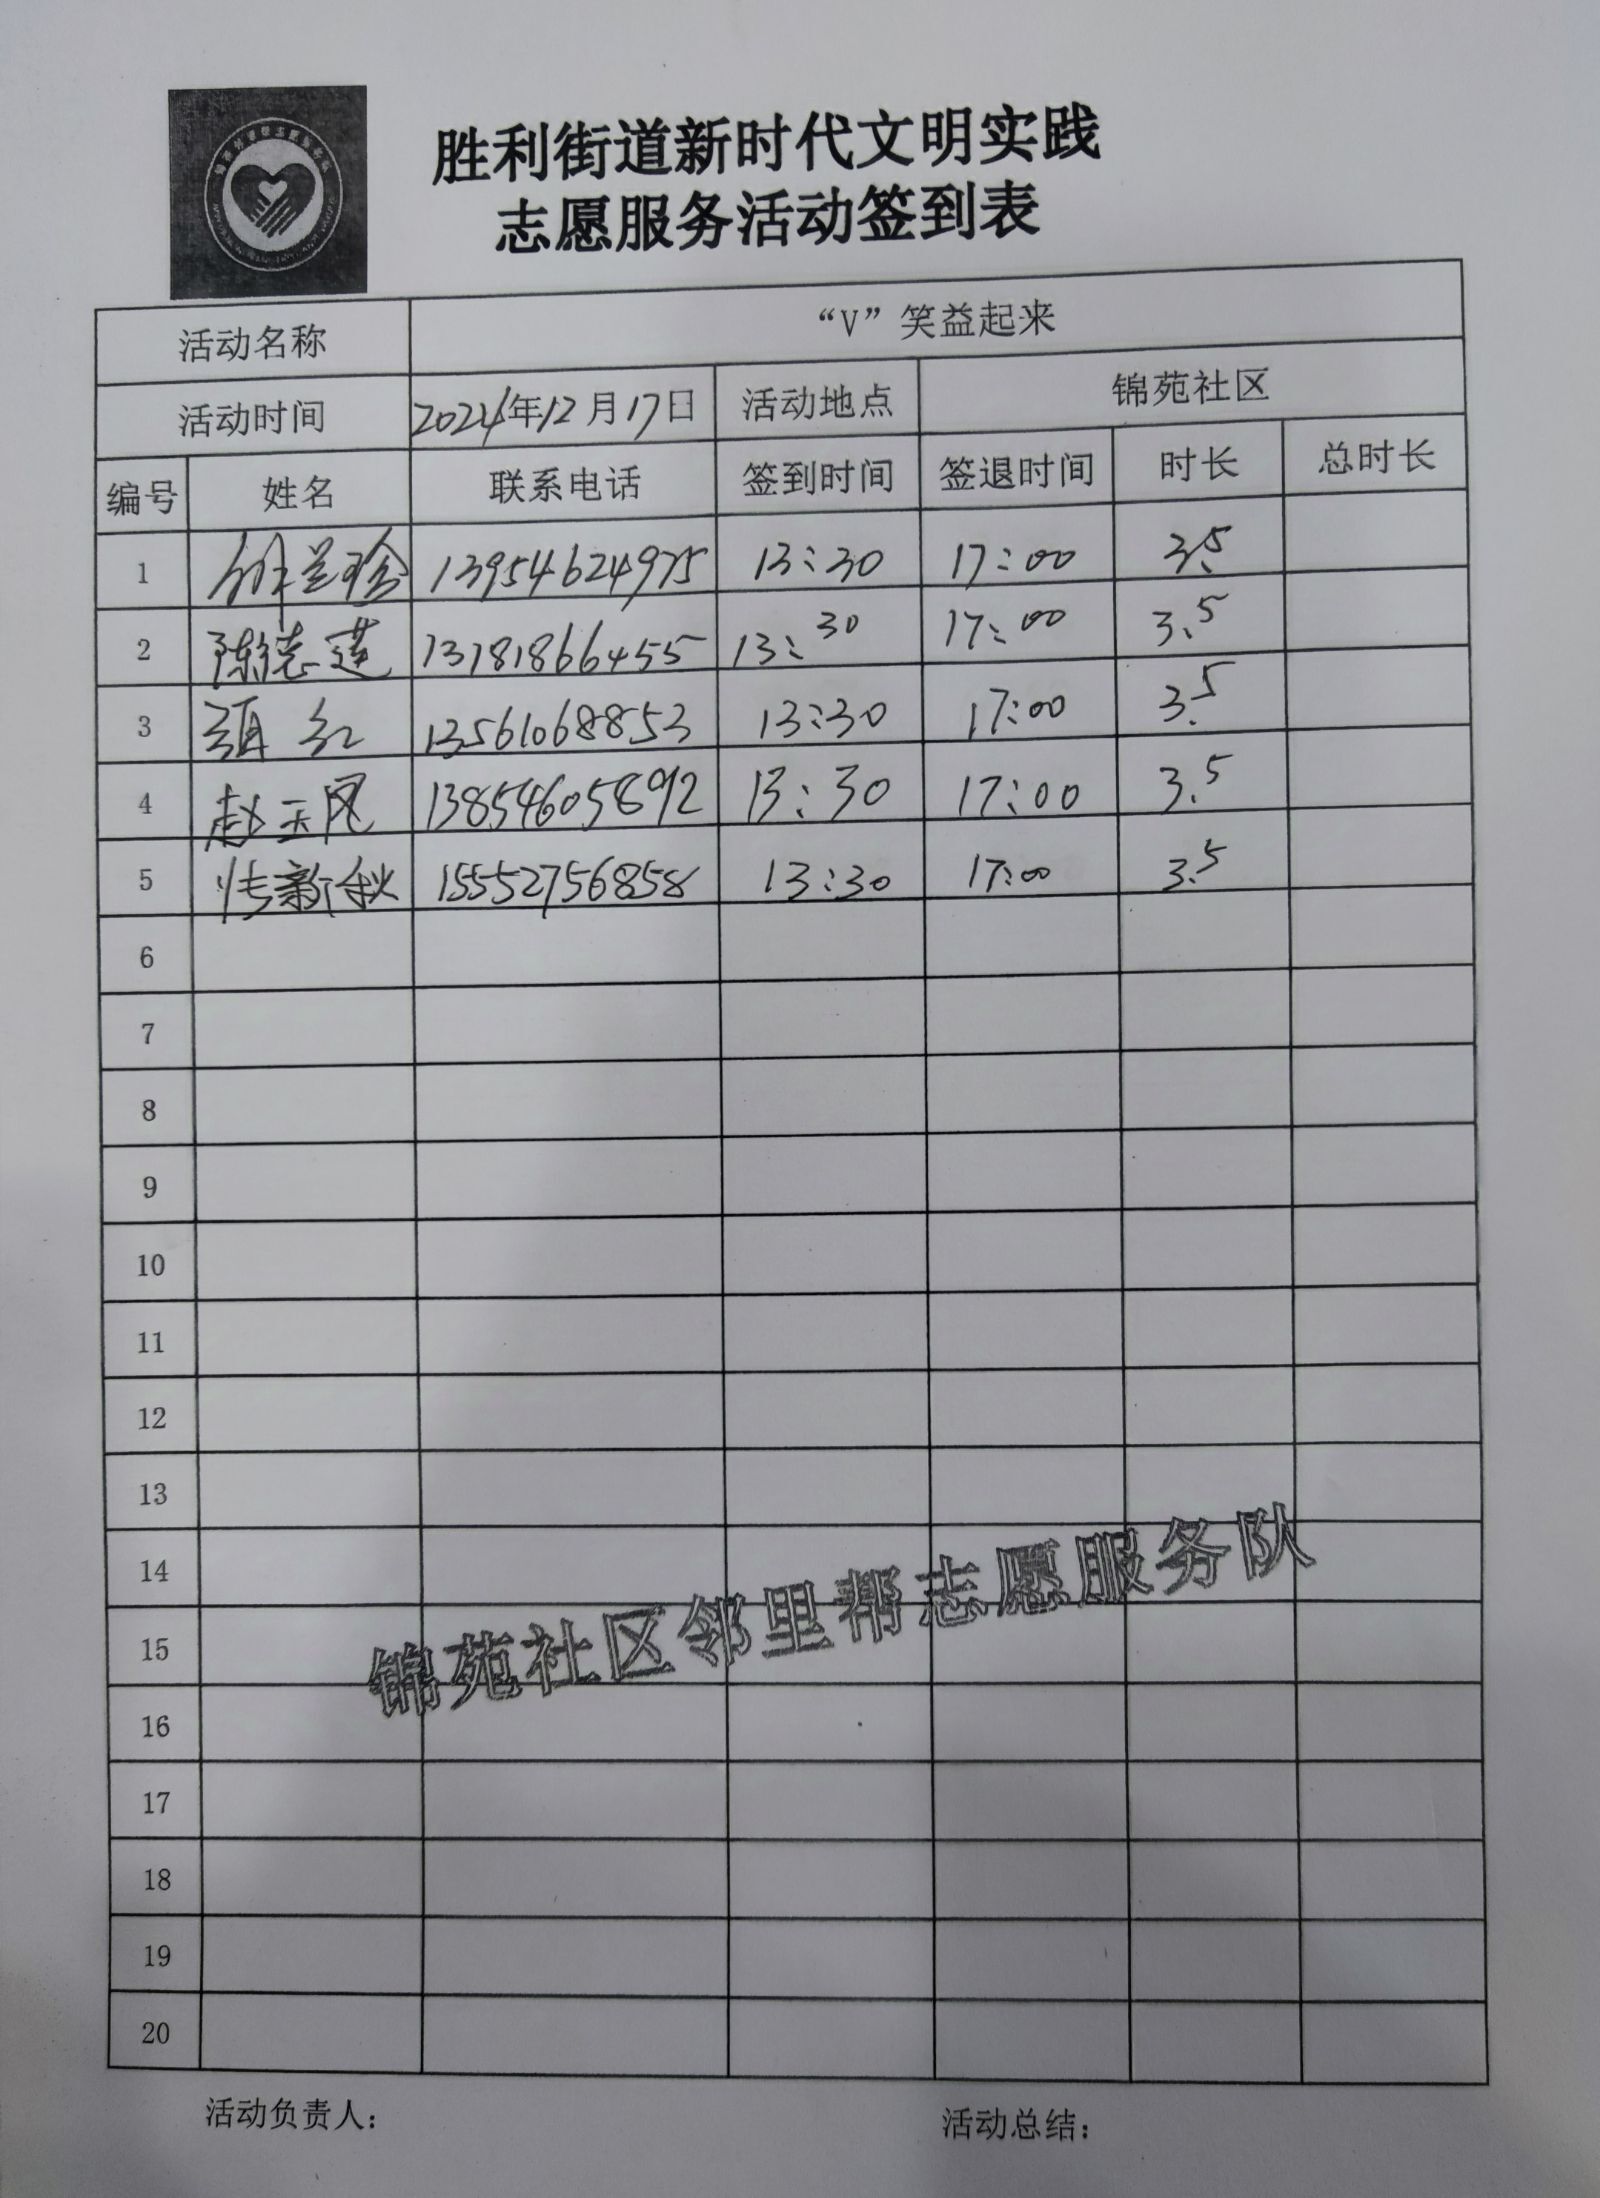 胜利街道新时代文明实践
志愿服务活动签到表
活动名称 “V”笑益起来
活动时间 2024年12月17日 活动地点 锦苑社区
编号 姓名 联系电话 签到时间 签退时间 时长 总时长
1 徐兰珍 13954624975 13:30 17:00 3.5
2 陈德莲 13181866455 13:30 17:00 3.5
3 红 13561068853 13:30 17:00 3.5
4 赵玉凤 13854605892 13:30 17:00 3.5
5 新秋 15552756858 13:30 17:00 3.5
6
7
8
9
10
11
12
13
14
15
16
17
18
19
20
锦苑社区邻里帮志愿服务队
活动负责人：
活动总结：